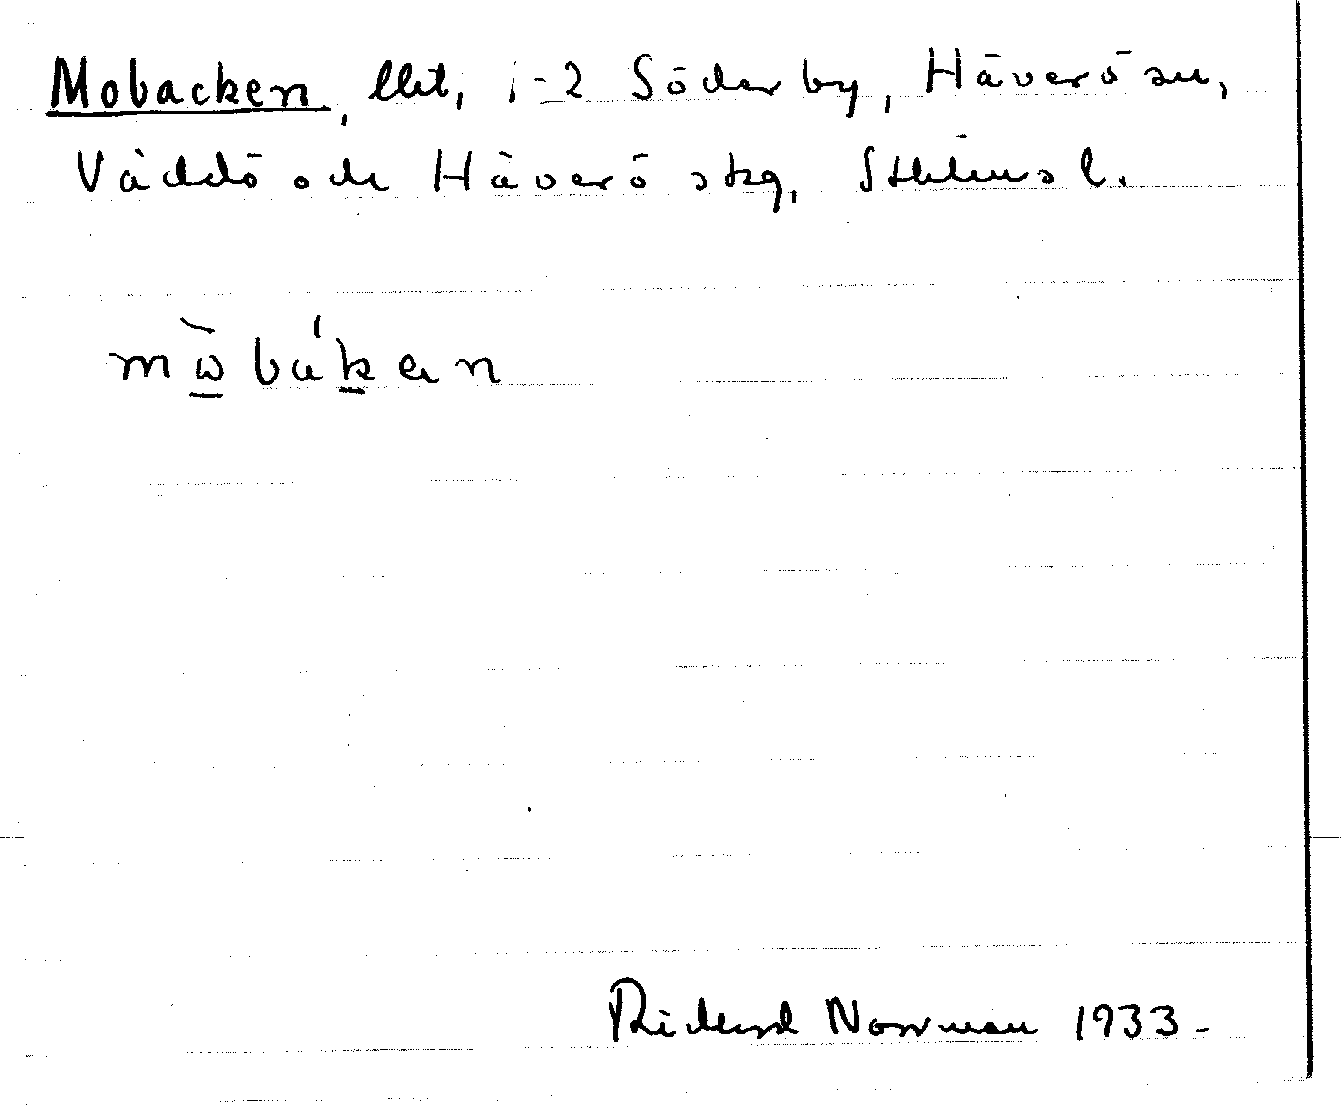 Mobacken, lht, 1-2 Söderby, Häverö sn,
Väddö och Häverö skg, Sthlms l.
mὼbák̲an
Rickard Norman 1933-